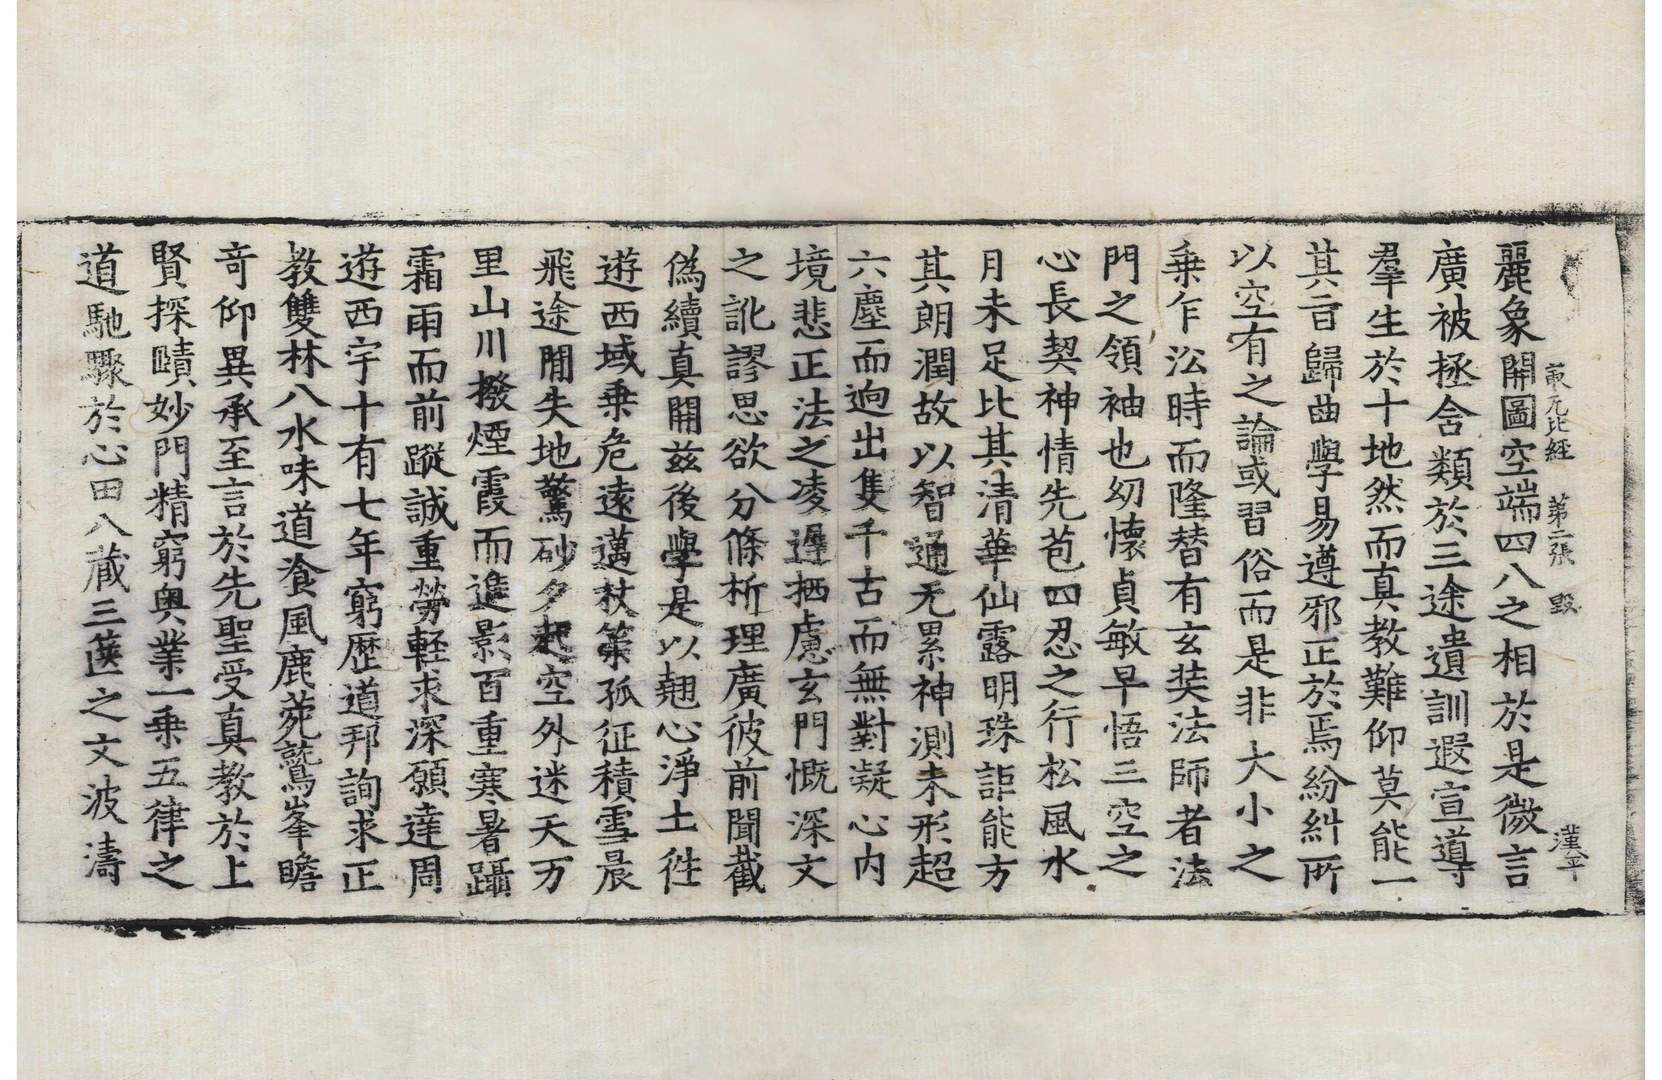 最无比経 第二張 毀 漢平
麗象開圖空端四八之相於是微言
廣被拯含類於三途遺訓遐宣導
羣生於十地然而真教難仰莫能一
其旨歸曲學易遵邪正於焉紛糾所
以空有之論或習俗而是非大小之
乗乍㳂時而隆替有玄奘法師者法
門之領袖也㓜懷貞敏早悟三空之
心長契神情先苞四忍之行松風水
月未足比其清華仙露明珠詎能方
其朗潤故以智通无累神測未形超
六塵而逈出隻千古而無對凝心內
境悲正法之凌遲栖慮玄門慨深文
之訛謬思欲分條析理廣彼前聞截
偽續真開茲後學是以翹心淨土徃
遊西域乗危遠邁杖策孤征積雪晨
飛途閒失地驚砂夕起空外迷天万
里山川撥煙霞而進影百重寒暑躡
霜雨而前蹤誠重勞軽求深願達周
遊西宇十有七年窮歷道邦詢求正
教雙林八水味道飡風鹿菀鷲峯瞻
竒仰異承至言於先聖受真教於上
賢探賾妙門精窮奧業一乗五律之
道馳驟於心田八蔵三篋之文波濤